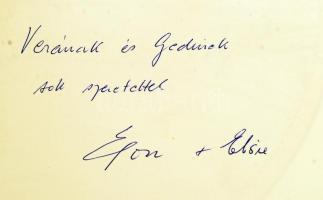 Verának és Gedinek
sok szeretettel
Egon + Elvire